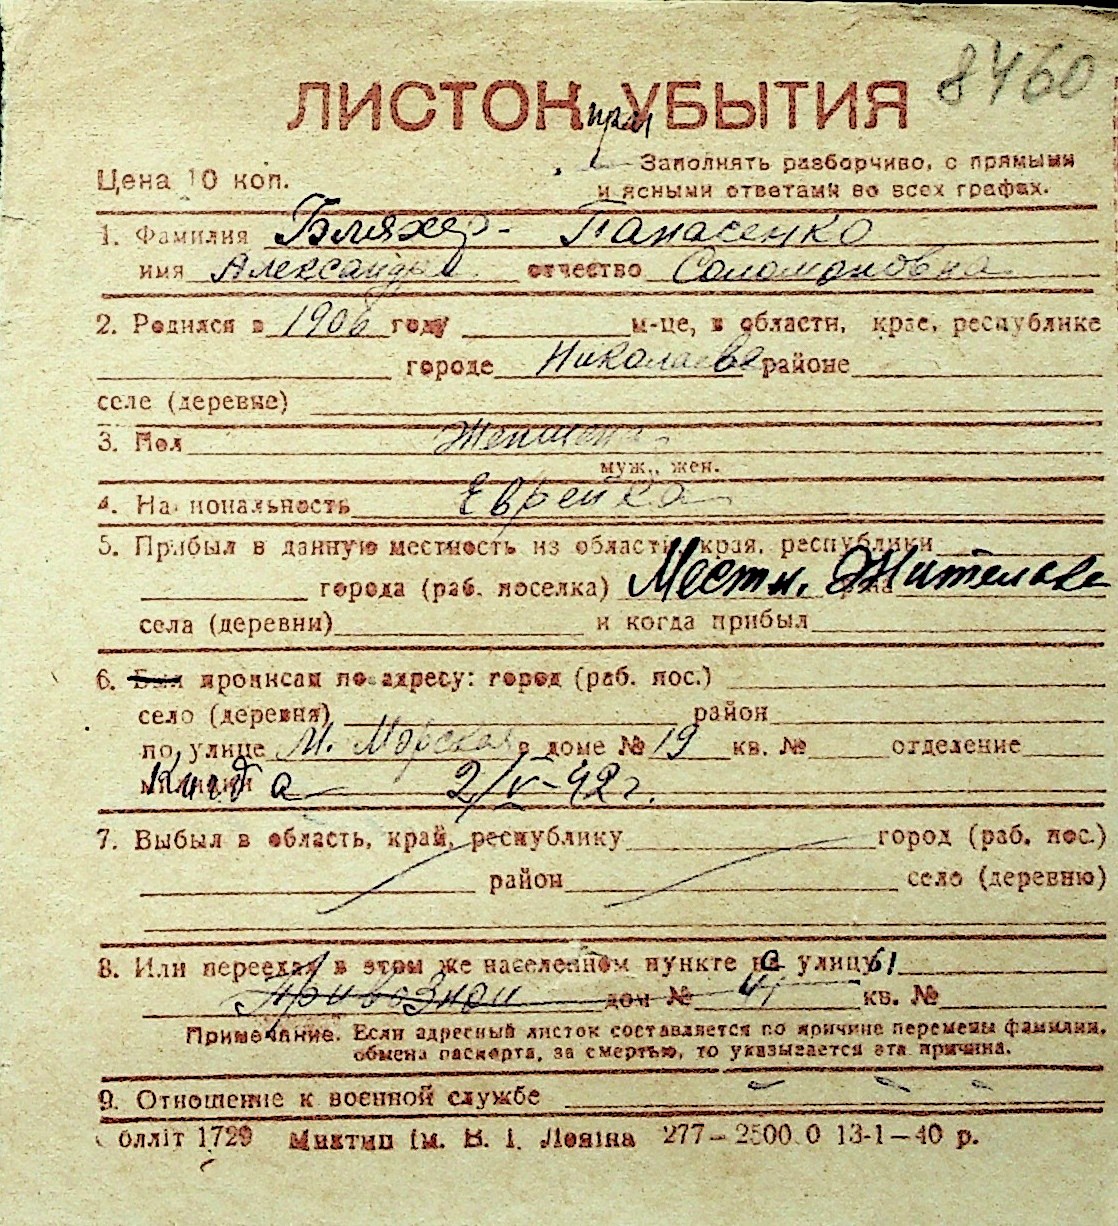 8460
ЛИСТОК УБЫТИЯ
при
Цена 10 коп.
Заполнять разборчиво, с прямыми
и ясными ответами во всех графах.
1. Фамилия Бляхер- Панасенко
имя Александра отчество Соломоновна
2. Родился в 1906 году м-це, в области, крае, республике
городе Николаеве районе
селе (деревне)
3. Пол Женщена
муж., жен.
4. Национальность Еврейка
5. Прибыл в данную местность из области, края, республики
города (раб. поселка) Местн. Жителька
села (деревни) и когда прибыл
6. Был прописан по адресу: город (раб. пос.)
село (деревня) район
по улице М. Морская в доме № 19 кв. № отделение
милиции Куда 2/V-42 г.
7. Выбыл в область, край, республику город (раб. пос.)
район село (деревню)
8. Или переехал в этом же населенном пункте с улицы
Привозной дом № 41 кв. №
Примечание. Если адресный листок составляется по причине перемены фамилии,
обмена паспорта, за смертью, то указывается эта причина.
9. Отношение к военной службе
блліт 1729 Миктип ім. В. І. Леніна 277—2500 0 13-1—40 р.